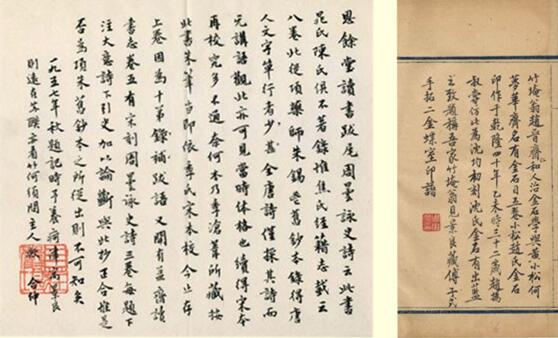 思餘堂讀書跋尾周曇詠史詩云此書
晁氏陳氏俱不著錄惟焦氏經籍志載云
八卷此從項藥師朱錫鬯舊鈔本錄得唐
人文字單行者少甚全唐詩僅採其詩而
元講語觀此亦可見當時体格也續得宋本
再校完多不通奈何本乃季滄葦所藏按
此書朱筆當即依季氏宋本校今止存
上卷因為十弟錄補跋語又閱有益齋讀
書志卷五有宋刻周曇詠史詩三卷每題下
注大意詩下引史如此論斷與此抄正合惟是
否為項朱舊鈔本之所從出則不可知矣
一九五七年秋題記時予養疴津寓景良
則遠在蘇聯者竹何須問主人
竹崦翁趙晉齋和人治金石學與黃小松何
夢華齊名有金石目五卷小松趙氏金石
印作于乾隆四十年乙未時三十二歲趙撝
叔嘗仿此為沈均初刻沈氏金石有出藍
之致題稱吾家竹崦翁見景良藏傅子式
手拓二金蜨室印譜